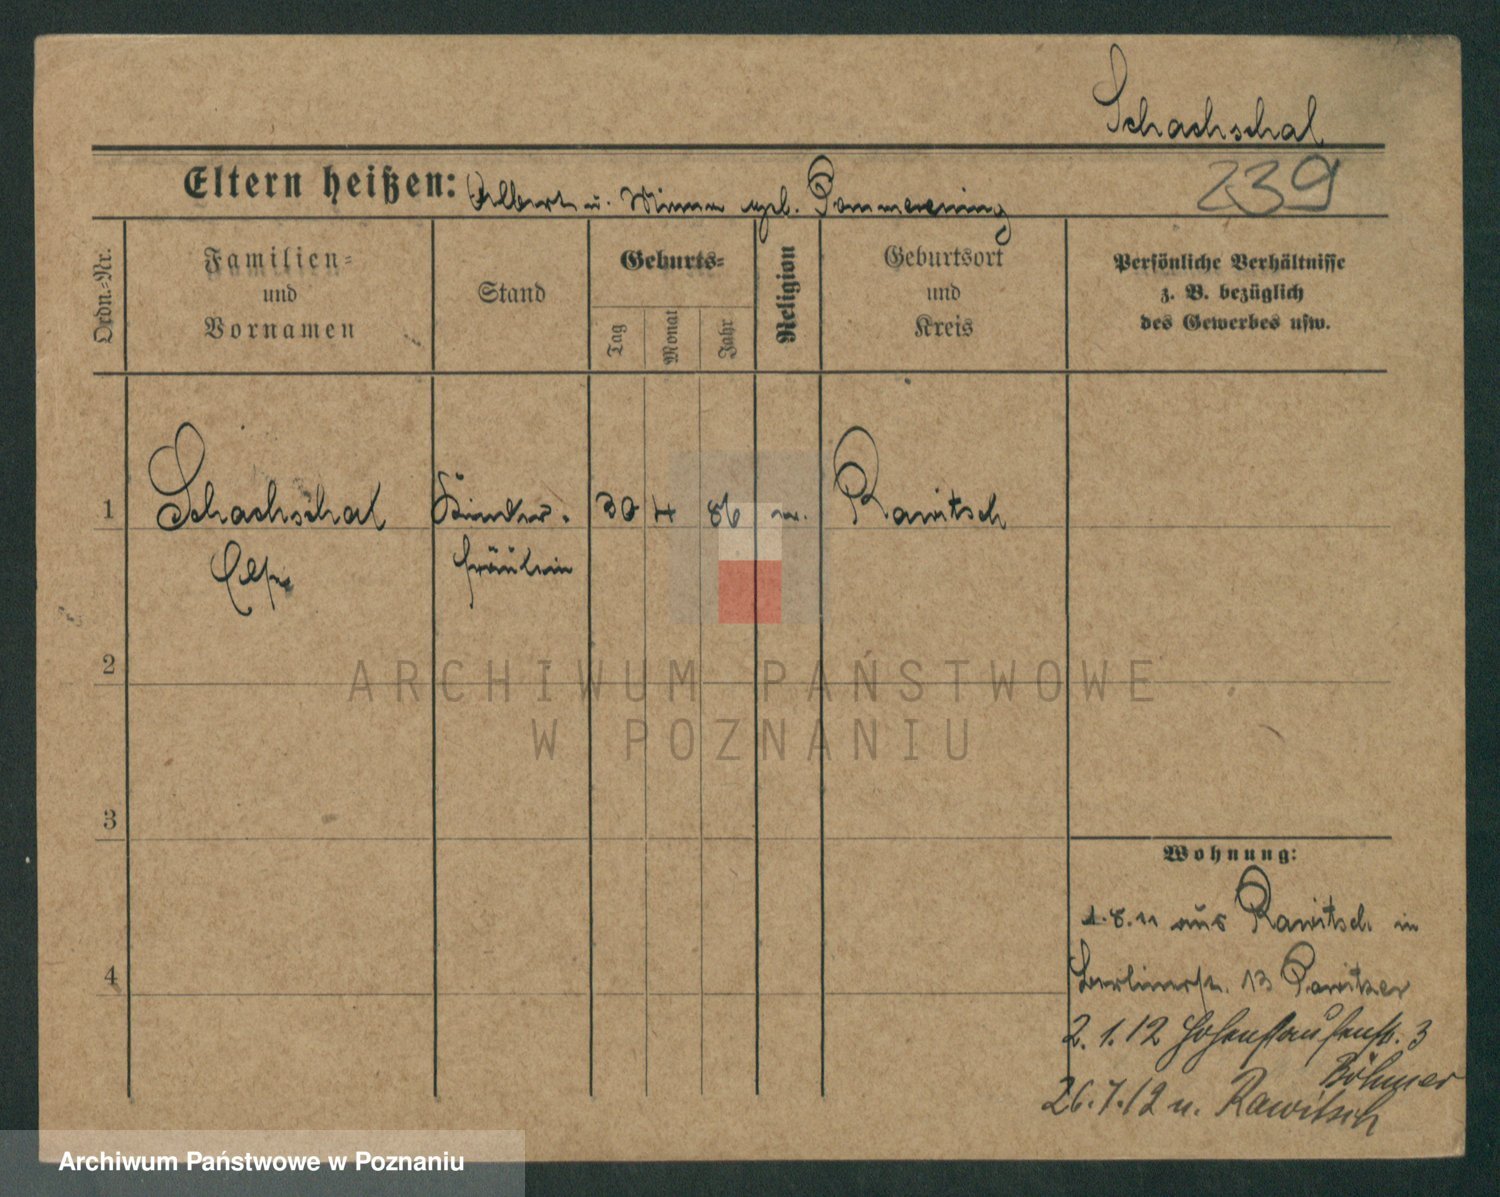 Schachschal
Eltern heißen: Albert u. Minna geb. Pommerening
239
Ordn.-Nr.
Familien-
und
Vornamen
Stand
Geburts-
Tag
Monat
Jahr
Religion
Geburtsort
und
Kreis
Persönliche Verhältnisse
z. B. bezüglich
des Gewerbes usw.
1 Schachschal Kinder- 30 4 86 Rawitsch
Else fräulein
2
ARCHIWUM PAŃSTWOWE
W POZNANIU
3
Wohnung:
1.8.11 aus Rawitsch in
4
Berlinerstr. 13
2.1.12 Hohenstaufenstr. 3
Böhmer
26.7.12 n. Rawitsch
Archiwum Państwowe w Poznaniu